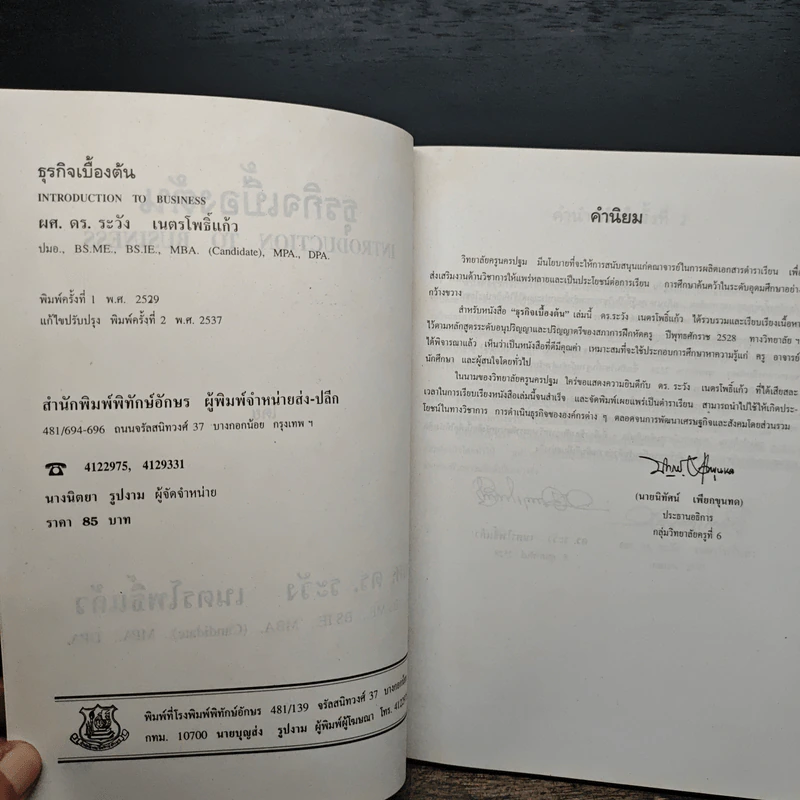 ธุรกิจเบื้องต้น
INTRODUCTION TO BUSINESS
ผศ. ดร. ระวัง เนตรโพธิ์แก้ว
ปมอ., BS.ME., BS.IE., MBA. (Candidate), MPA., DPA.
พิมพ์ครั้งที่ 1 พ.ศ. 2529
แก้ไขปรับปรุง พิมพ์ครั้งที่ 2 พ.ศ. 2537
สำนักพิมพ์พิทักษ์อักษร ผู้พิมพ์จำหน่ายส่ง-ปลีก
481/694-696 ถนนจรัลสนิทวงศ์ 37 บางกอกน้อย กรุงเทพ ฯ
☎ 4122975, 4129331
นางนิตยา รูปงาม ผู้จัดจำหน่าย
ราคา 85 บาท
พิมพ์ที่โรงพิมพ์พิทักษ์อักษร 481/139 จรัลสนิทวงศ์ 37 บางกอก
กทม. 10700 นายบุญส่ง รูปงาม ผู้พิมพ์ผู้โฆษณา โทร.
คำนิยม
วิทยาลัยครูนครปฐม มีนโยบายที่จะให้การสนับสนุนแก่คณาจารย์ในการผลิตเอกสารตำราเรียน เพื่อ
ส่งเสริมงานด้านวิชาการให้แพร่หลายและเป็นประโยชน์ต่อการเรียน การศึกษาค้นคว้าในระดับอุดมศึกษาอย่าง
กว้างขวาง
สำหรับหนังสือ "ธุรกิจเบื้องต้น" เล่มนี้ ดร.ระวัง เนตรโพธิ์แก้ว ได้รวบรวมและเรียบเรียงเนื้อหา
ไว้ตามหลักสูตรระดับอนุปริญญาและปริญญาตรีของสภาการฝึกหัดครู ปีพุทธศักราช 2528 ทางวิทยาลัย ฯ
ได้พิจารณาแล้ว เห็นว่าเป็นหนังสือที่ดีมีคุณค่า เหมาะสมที่จะใช้ประกอบการศึกษาหาความรู้แก่ ครู อาจารย์
นักศึกษา และผู้สนใจโดยทั่วไป
ในนามของวิทยาลัยครูนครปฐม ใคร่ขอแสดงความยินดีกับ ดร. ระวัง เนตรโพธิ์แก้ว ที่ได้เสียสละ
เวลาในการเรียบเรียงหนังสือเล่มนี้จนสำเร็จ และจัดพิมพ์เผยแพร่เป็นตำราเรียน สามารถนำไปใช้ให้เกิดประ-
โยชน์ในทางวิชาการ การดำเนินธุรกิจขององค์กรต่าง ๆ ตลอดจนการพัฒนาเศรษฐกิจและสังคมโดยส่วนรวม
(นายนิทัศน์ เพียกขุนทด)
ประธานอธิการ
กลุ่มวิทยาลัยครูที่ 6